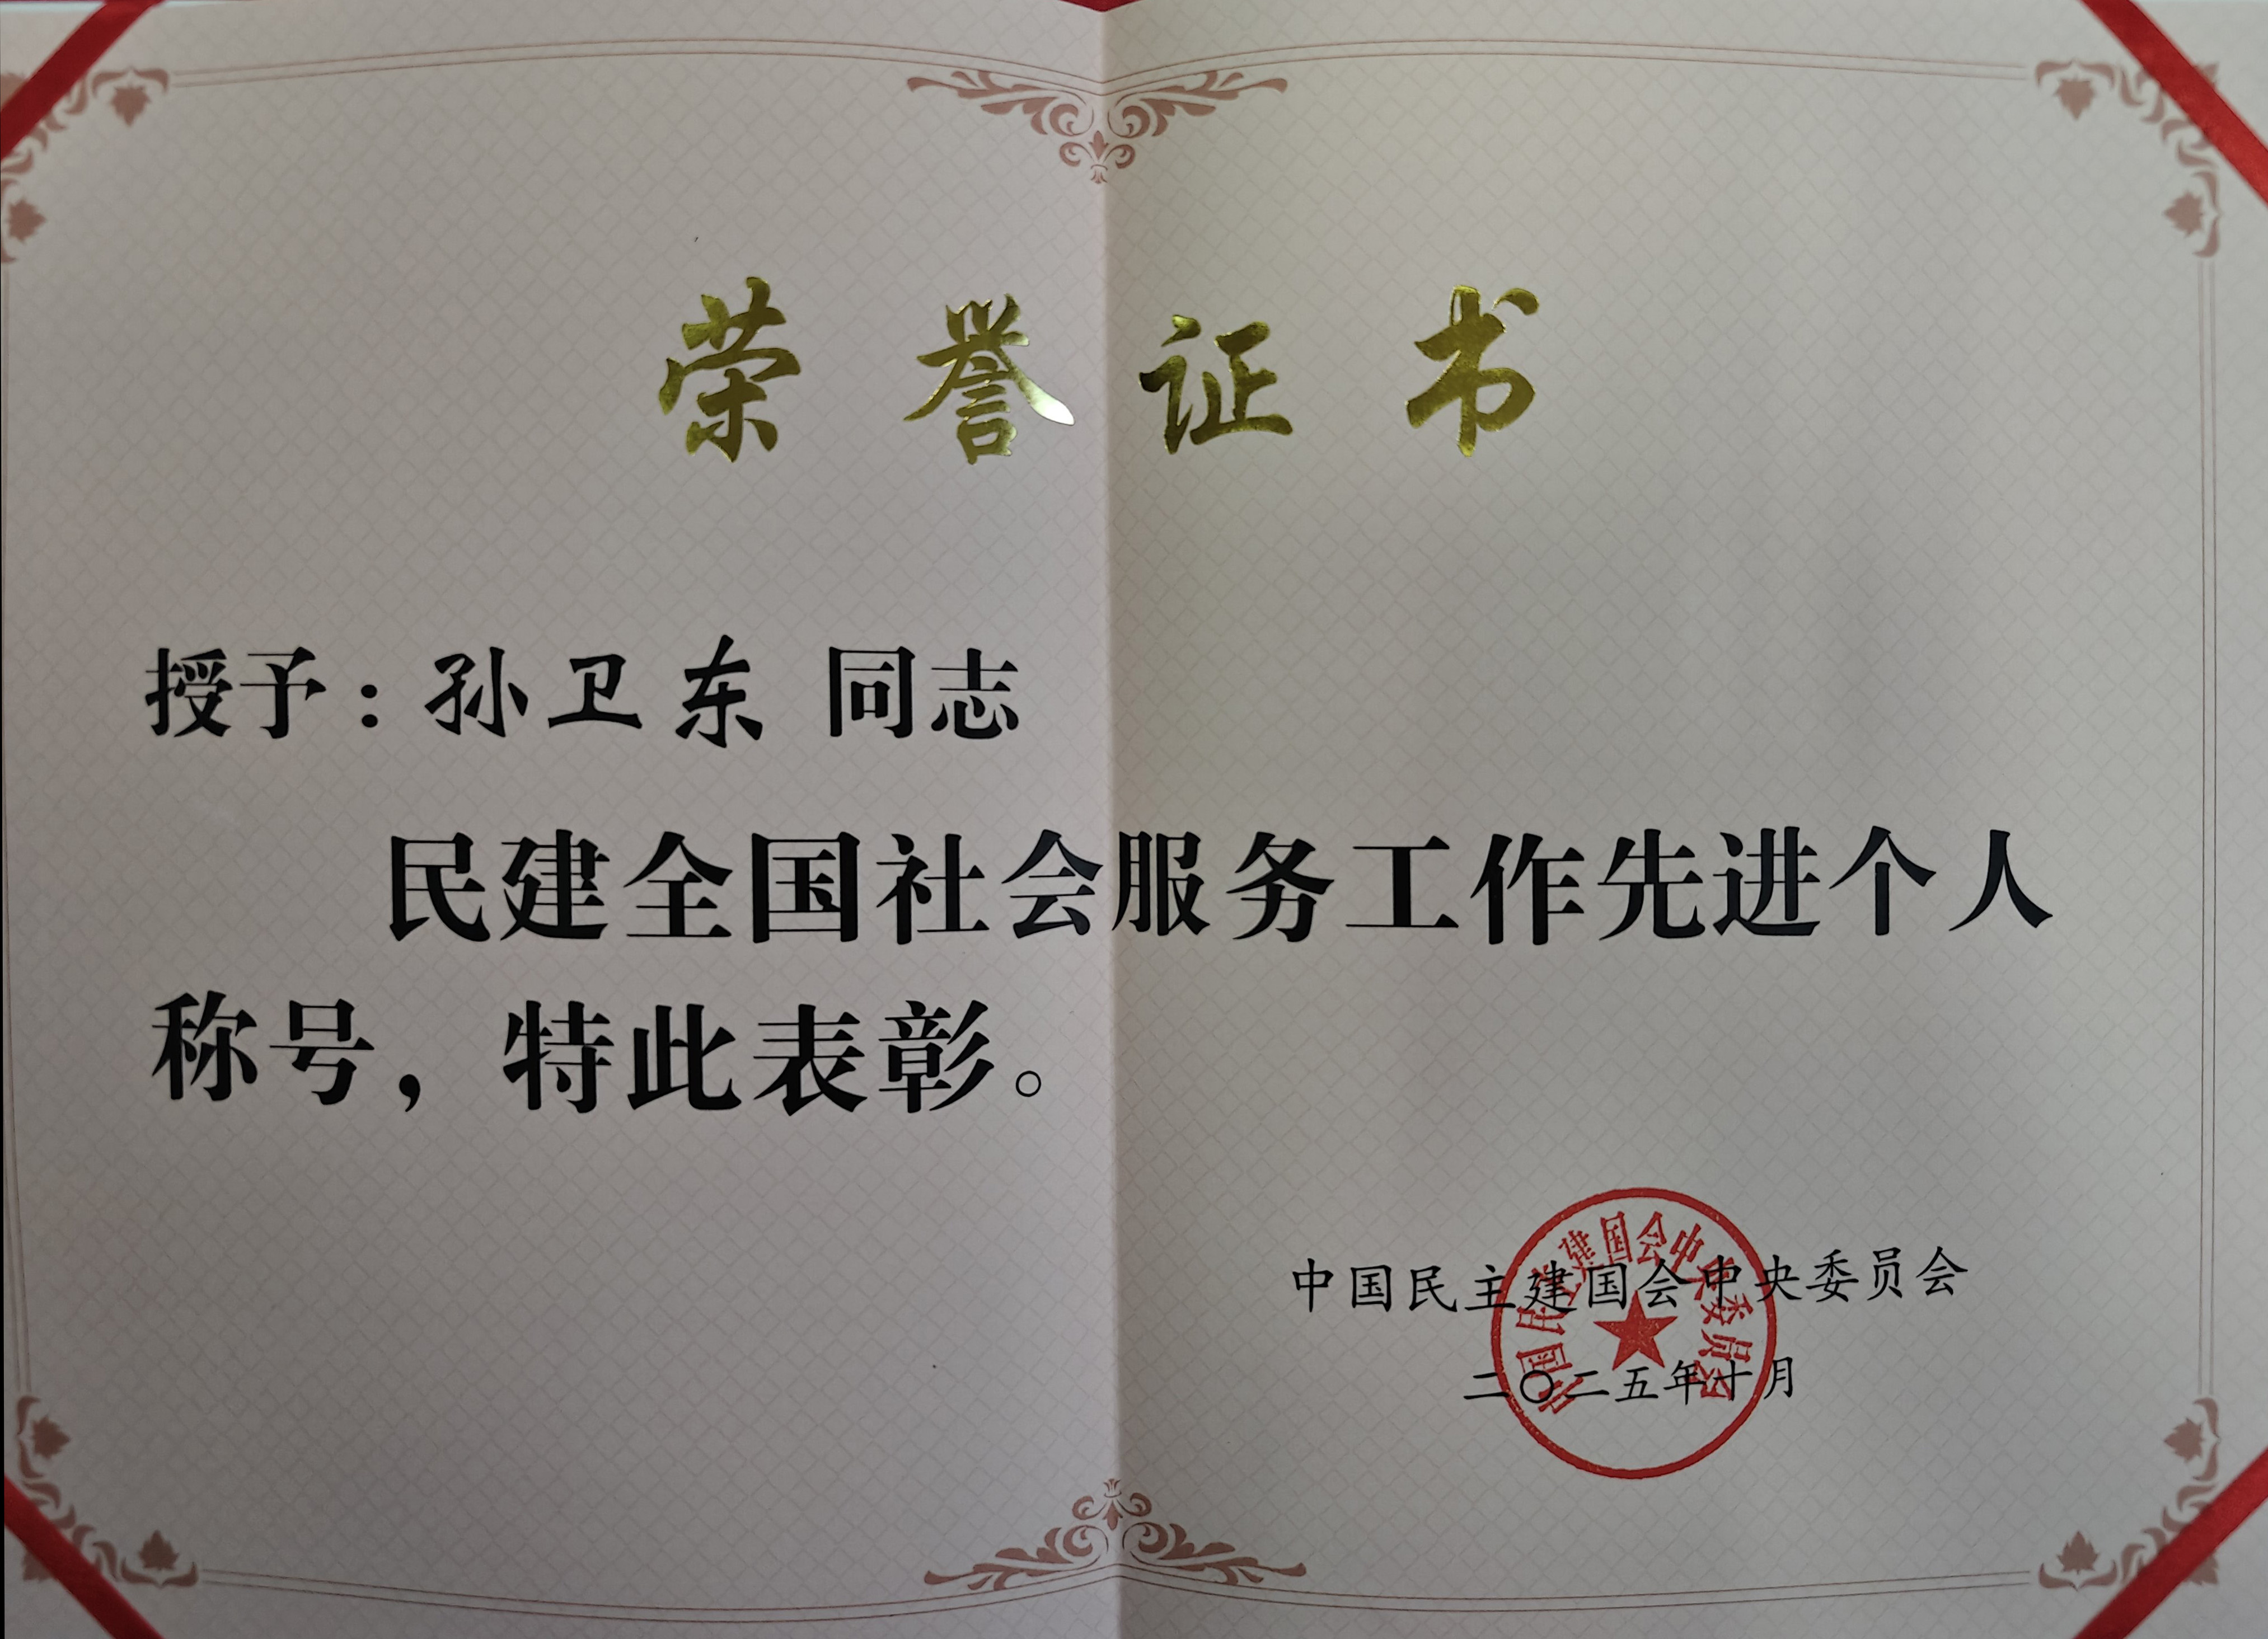 荣誉证书
授予：孙卫东 同志
民建全国社会服务工作先进个人
称号，特此表彰。
中国民主建国会中央委员会
二〇二五年十月
中国民主建国会中央委员会